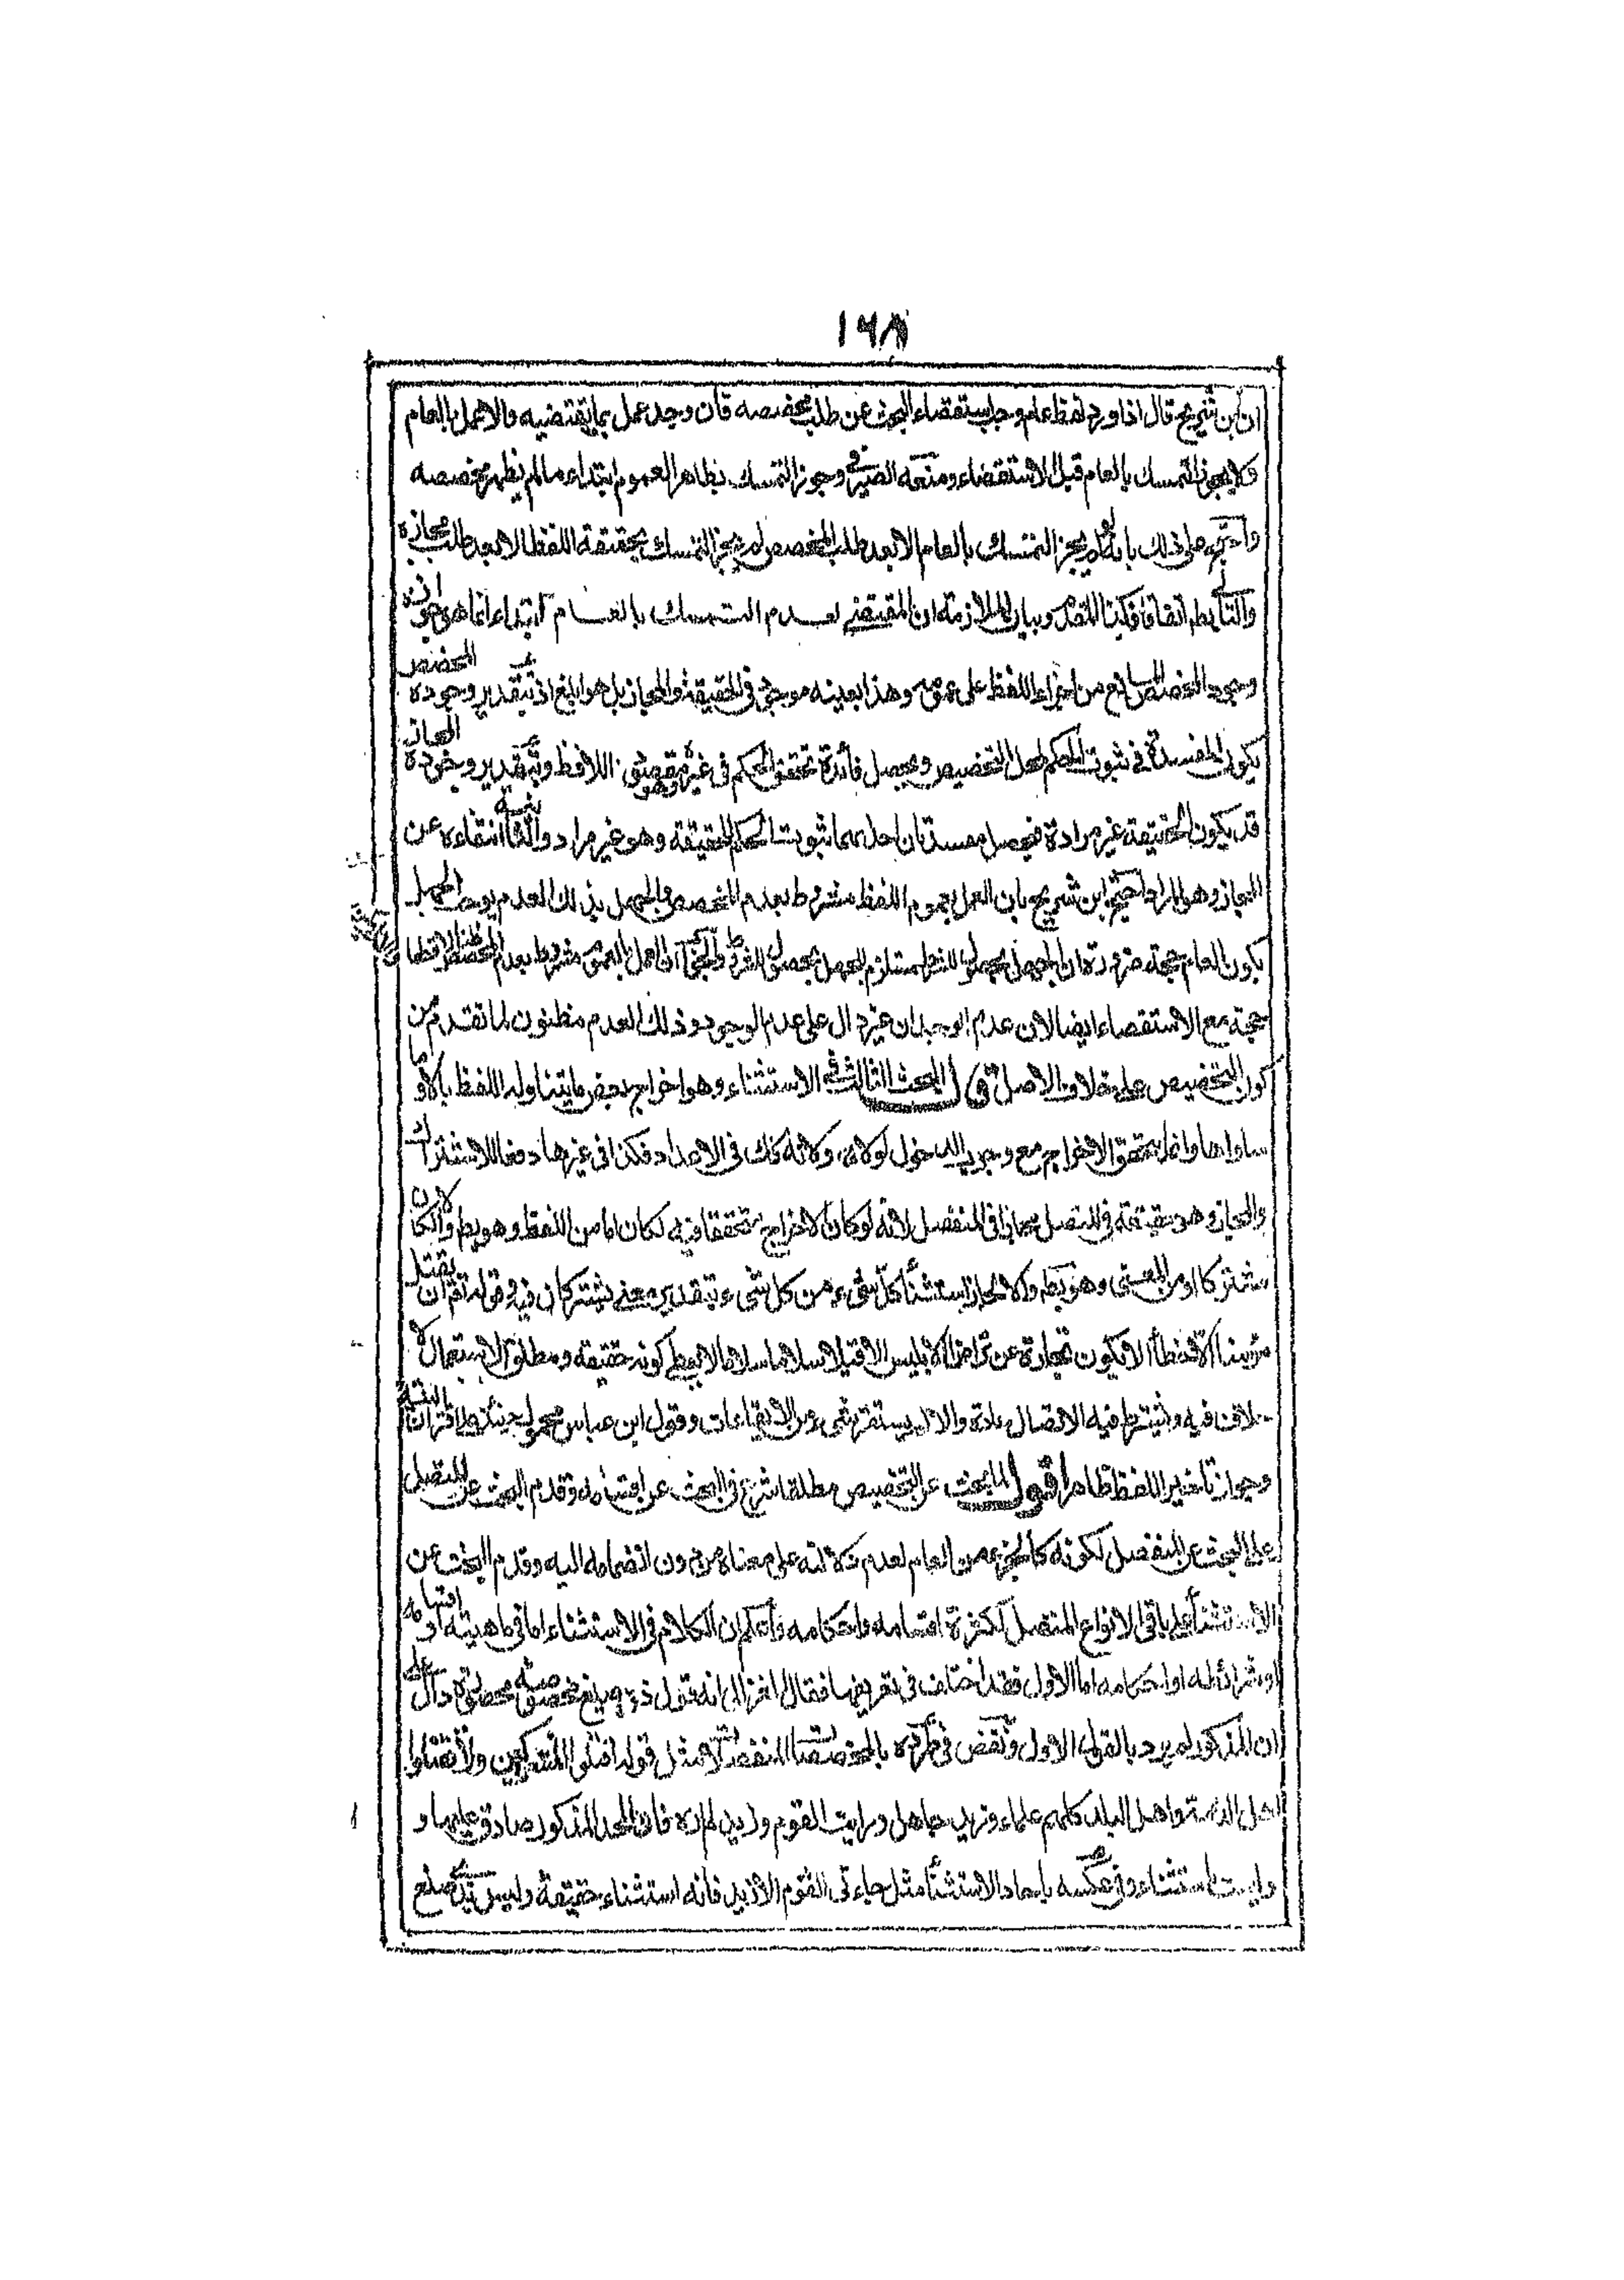 ١٦٨
ان ابن شريح قال اذا ورد لفظ عام وجب استقصاء البحث عن طلب مخصصه فان وجد عمل بما يقتضيه والا عمل بالعام
ولا يجوز التمسك بالعام قبل الاستقصاء ومنعه الصيرفى وجوز التمسك بظاهر العموم ابتداء ما لم يظهر مخصصه
واحتج على ذلك بانه لو لم يجز التمسك بالعام الا بعد طلب المخصص لم يجز التمسك بحقيقة اللفظ الا بعد طلب مجازه
والتالى بط اتفاقا فكذا المقدم وبيان الملازمة ان المقتضى لعدم التمسك بالعام ابتداء انما هو جواز
وجود المخصص المانع من اجراء اللفظ على عمومه وهذا بعينه موجود فى الحقيقة والمجاز بل هو ابلغ اذ بتقدير وجوده المخصص
يكون المفسدة فى ثبوت الحكم لمحل التخصيص ويحصل فائدة تحقق الحكم فى غيره وهو مقصود اللافظ وبتقدير وجوده المجاز
قد يكون الحقيقة غير مرادة فيحصل مفسدتان احدهما ثبوت الحكم للحقيقة وهو غير مراد والثانية انتفاءه عن
المجاز وهو المراد احتج ابن شريح بان العمل بعموم اللفظ مشروط بعدم المخصص والجهل بذلك العدم يوجب الجهل
بكون العام حجة ضرورة ان الجهل بحصول الشرط مستلزم للجهل بحصول المشروط والجواب ان العمل بالعموم مشروط بعدم المخصص ظنا لا قطعا
حجة مع الاستقصاء ايضا لان عدم الوجدان غير دال على عدم الوجود وذلك العدم مظنون لما تقدم من
كون التخصيص على خلاف الاصل قال البحث الثالث فى الاستثناء وهو اخراج بعض ما يتناوله اللفظ بالا او ما
ساواها وانما يتحقق الاخراج مع وجوب الدخول لولاه ولانه كك فى الاعداد فكذا فى غيرها دفعا للاشتراك
والمجاز وهو حقيقة فى المتصل مجاز فى المنفصل لانه لو كان الاخراج متحققا فيه لكان اما من اللفظ وهو بط والا لكان
مشتركا او من المعنى وهو بط والا لجاز استثناء كل شىء من كل شىء بتقدير معنى يشتركان فيه وقوله تع ان يقتل
مؤمنا الا خطأ الا ان يكون تجارة عن تراض الا ابليس الا قيلا سلاما سلاما لا يعطى كونه حقيقة ومطلق الاستعمال لا
خلاف فيه ويشترط فيه الاتصال عادة والا لم يستقر شىء من الايقاعات وقول ابن عباس محمول حينئذ على اقتران النية
وجواز تاخير اللفظ ظاهرا اقول لما بحث عن التخصيص مطلقا شرع فى البحث عن اقسامه وقدم البحث عن المتصل
على البحث عن المنفصل لكونه كالجزء من العام لعدم دلالته على معناه من دون انضمامه اليه وقدم البحث عن
الاستثناء على باقى الانواع المتصل لكثرة اقسامه واحكامه واعلم ان الكلام فى الاستثناء اما فى ماهيته او اقسامه
او شرائطه او احكامه اما الاول فقد اختلف فى تعريفها فقال الغزالى انه قول ذو صيغ مخصوصة محصورة دال على
ان المذكور لم يرد بالقول الاول ونقض فى طرده بالمخصصات المنفصلة مثل قوله اقتلوا المشركين ولا تقتلوا
اهل الذمة واهل البلد كلهم علماء وزيد جاهل ورايت القوم وزيد لم اره فان الحد المذكور صادق عليها و
وليست استثناء وفى عكسه باحاد الاستثناء مثل جاءنى القوم الا زيد فانه استثناء حقيقة وليس بذى صيغ